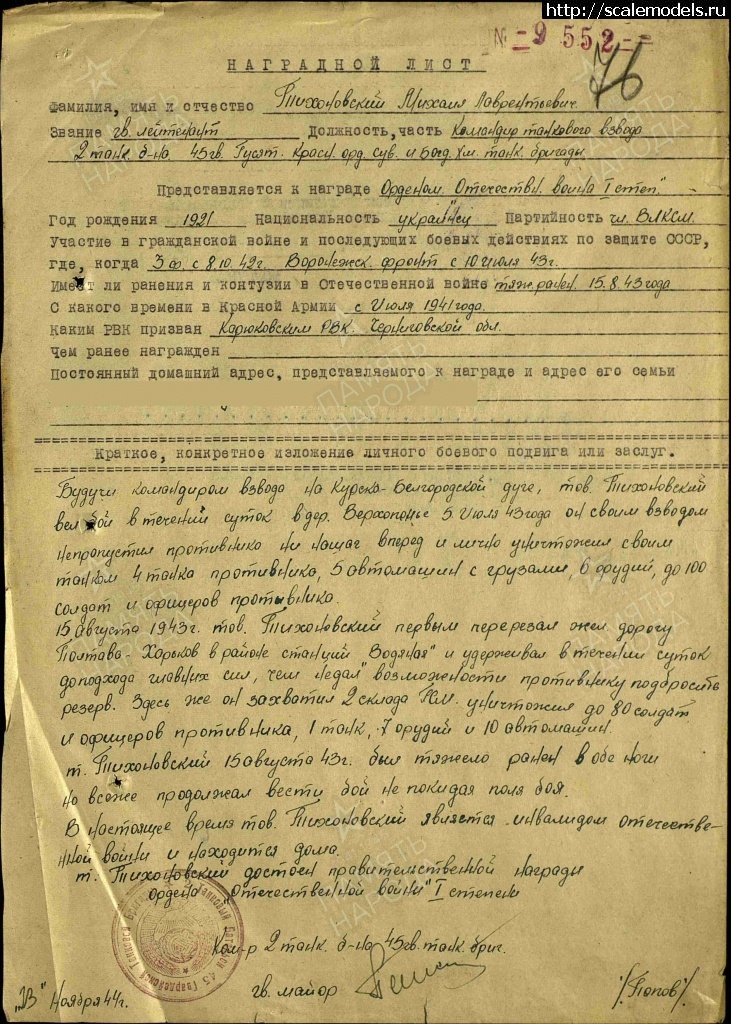 http://scalemodels.ru
№ -9 552-
76
НАГРАДНОЙ ЛИСТ
Фамилия, имя и отчество Тихоновский Михаил Лаврентьевич
Звание гв. лейтенант Должность, часть Командир танкового взвода
2 танк. б-на 45 гв. Гусят. Красн. орд. сув. и Богд. Хм. танк. бригады
Представляется к награде Орденом „Отечествен. война I степ."
Год рождения 1921 Национальность украинец Партийность чл. ВЛКСМ
Участие в гражданской войне и последующих боевых действиях по защите СССР,
где, когда З.ф. с 8.10.42г. Воронежск. фронт с 10 июля 43г.
Имеет ли ранения и контузии в Отечественной войне тяж. ранен 15.8.43 года
С какого времени в Красной Армии с июля 1941 года.
Каким РВК призван Корюковским РВК. Черниговской обл.
Чем ранее награжден
Постоянный домашний адрес, представляемого к награде и адрес его семьи
Краткое, конкретное изложение личного боевого подвига или заслуг.
Будучи командиром взвода на Курско-Белгородской дуге, тов. Тихоновский
вел бой в течении суток в дер. Верхопенье 5 июля 43 года он своим взводом
непропустил противника ни нашаг вперед и лично уничтожил своим
танком 4 танка противника, 5 автомашин с грузами, 6 орудий, до 100
солдат и офицеров противника.
15 августа 1943г. тов. Тихоновский первым перерезал жел. дорогу
Полтава - Харьков в районе станций „Водяная" и удерживал в течении суток
доподхода главных сил, чем недал возможности противнику подбросить
резерв. Здесь же он захватил 2 склада уничтожил до 80 солдат
и офицеров противника, 1 танк, 7 орудий и 10 автомашин.
т. Тихоновский 15 августа 43г. был тяжело ранен в обе ноги
но всеже продолжал вести бой не покидая поля боя.
В настоящее время тов. Тихоновский является инвалидом отечестве-
нной войни и находится дома.
т. Тихоновский достоен правительственной награды
ордена „отечественной войни" I степени
Ком-р 2 танк. б-на 45 гв. танк. бриг.
гв. майор /Попов/.
Ноября 44г.
ПАМЯТЬ НАРОДА